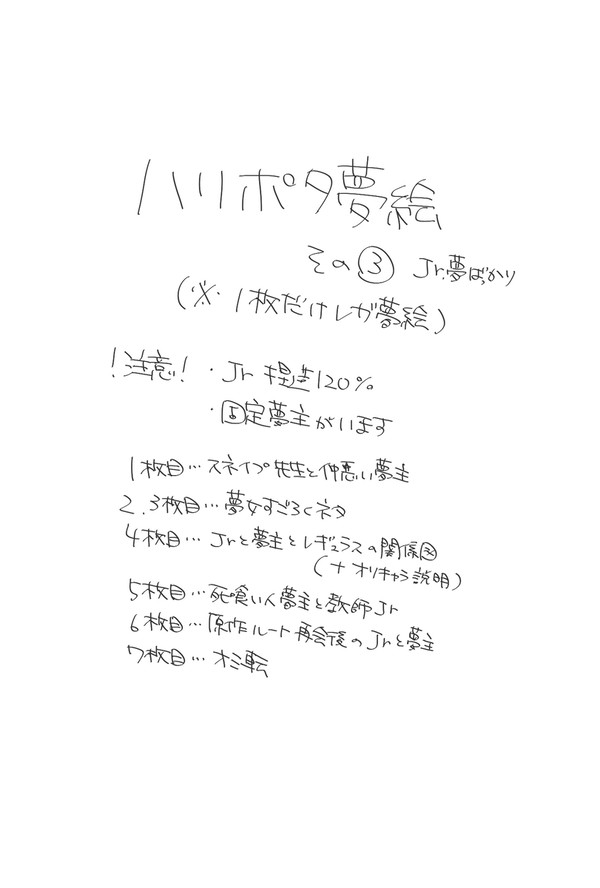 ハリポタ夢絵
その③ Jr.夢ばっかり
(※・1枚だけレガ夢絵)
!注意! ・Jr捏造120%
・固定夢主がいます
1枚目…スネイプ先生と仲悪い夢主
2.3枚目…夢女すごろくネタ
4枚目…Jrと夢主とレギュラスの関係図
(+オリキャラ説明)
5枚目…死喰い人夢主と教師Jr
6枚目…原作ルート再会後のJrと夢主
7枚目…オミ転